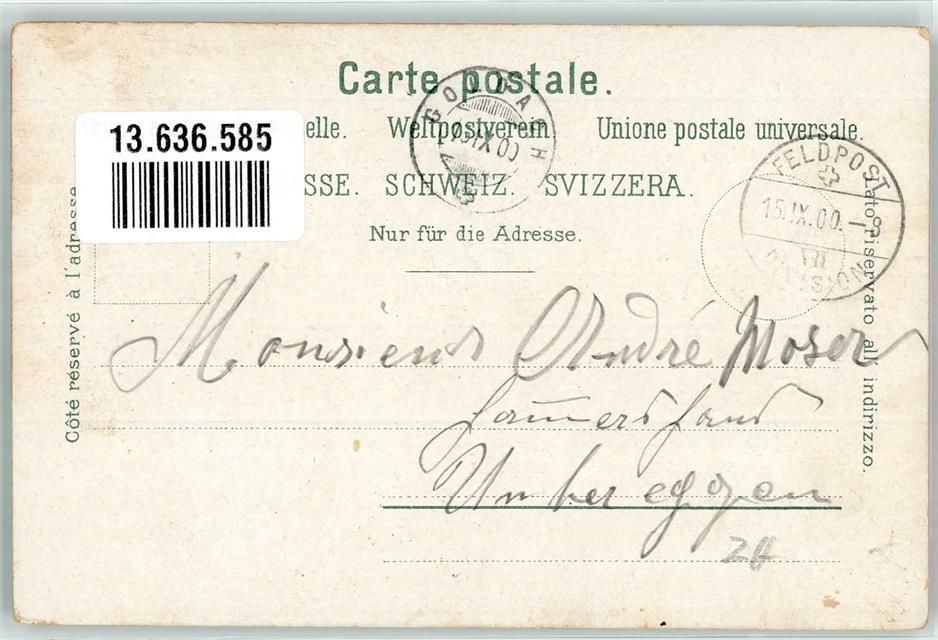 Carte postale.
13.636.585
elle. Weltpostverein. Unione postale universale.
SSE. SCHWEIZ. SVIZZERA.
Nur für die Adresse.
Côté réservé à l'adresse
Lato riservato all' indirizzo.
GOLDACH
IX 00
FELDPOST
15.IX.00.-8
VII
DIVISION
Monsieur André Moser
Untereggen